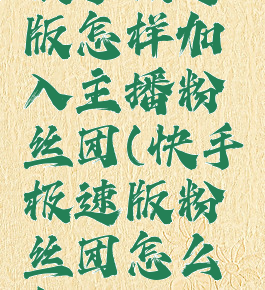 版怎样加
入主播粉
丝团(快手
极速版粉
丝团怎么